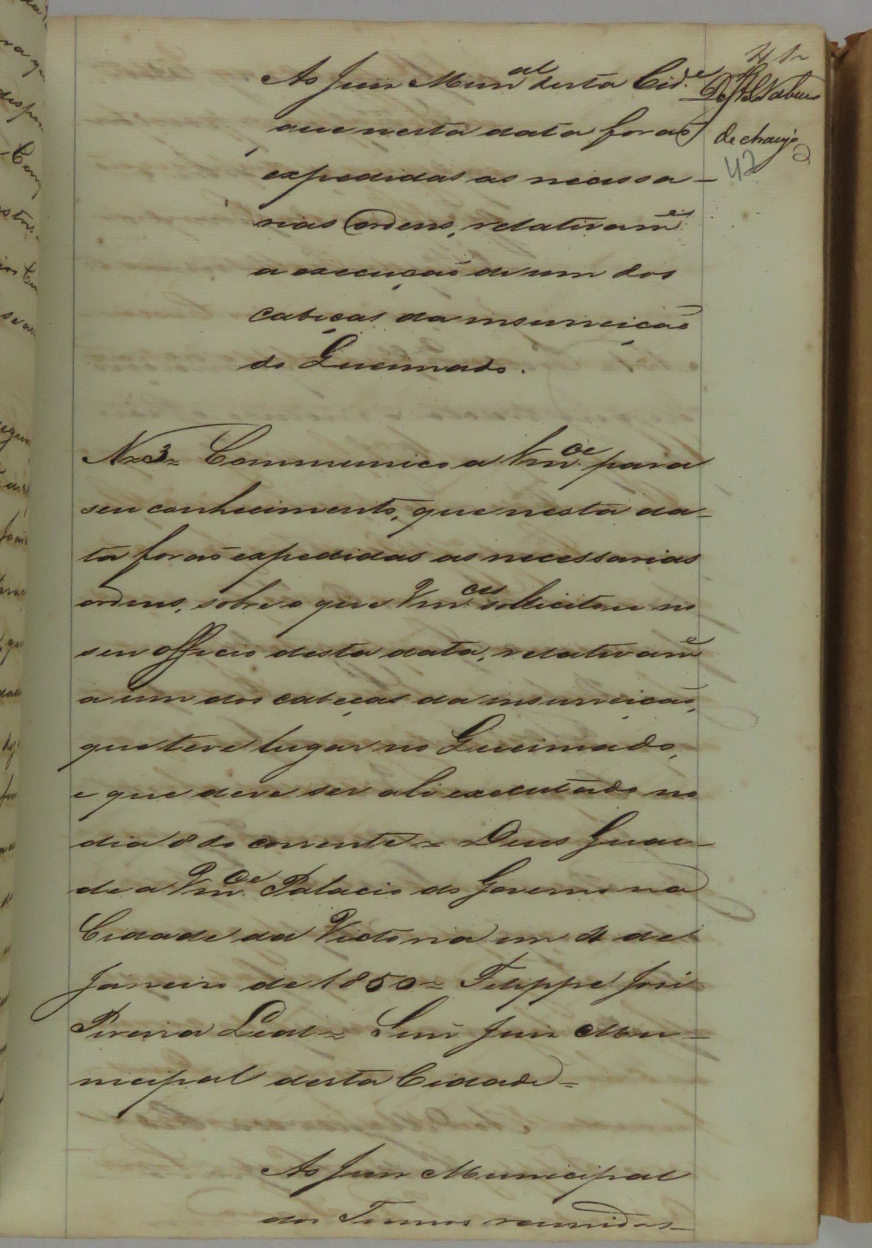 41
Ao Juiz Mun.al desta Cid.e
que nesta data forão
expedidas as necessa-
rias Ordens, relativam.e
a execução de um dos
cabeças da insurreição
do Queimado.
N=3= Communico a Vm.ce para
seu conhecimento, que nesta da-
ta forão expedidas as necessarias
ordens, sobre o que Vm.ces sollicitou no
seu officio desta data, relativam.e
a um dos cabeças da insurreição,
que teve lugar no Queimado,
e que deve ser ali executado no
dia 8 do corrente = Deus Guar-
de a Vm.ce Palacio do Governo na
Cidade da Victoria em 4 de
Janeiro de 1850 = Filippe José
Pereira Leal = Senr. Juiz Mu-
nicipal desta Cidade =
Ao Juiz Municipal
dos Termos reunidos
de Araujo
42